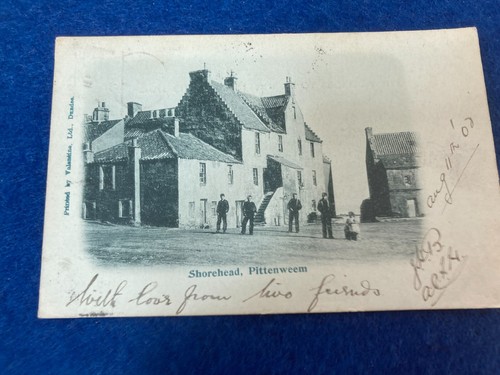 Printed by Valentine, Ltd., Dundee.
Shorehead, Pittenweem
With love from two friends